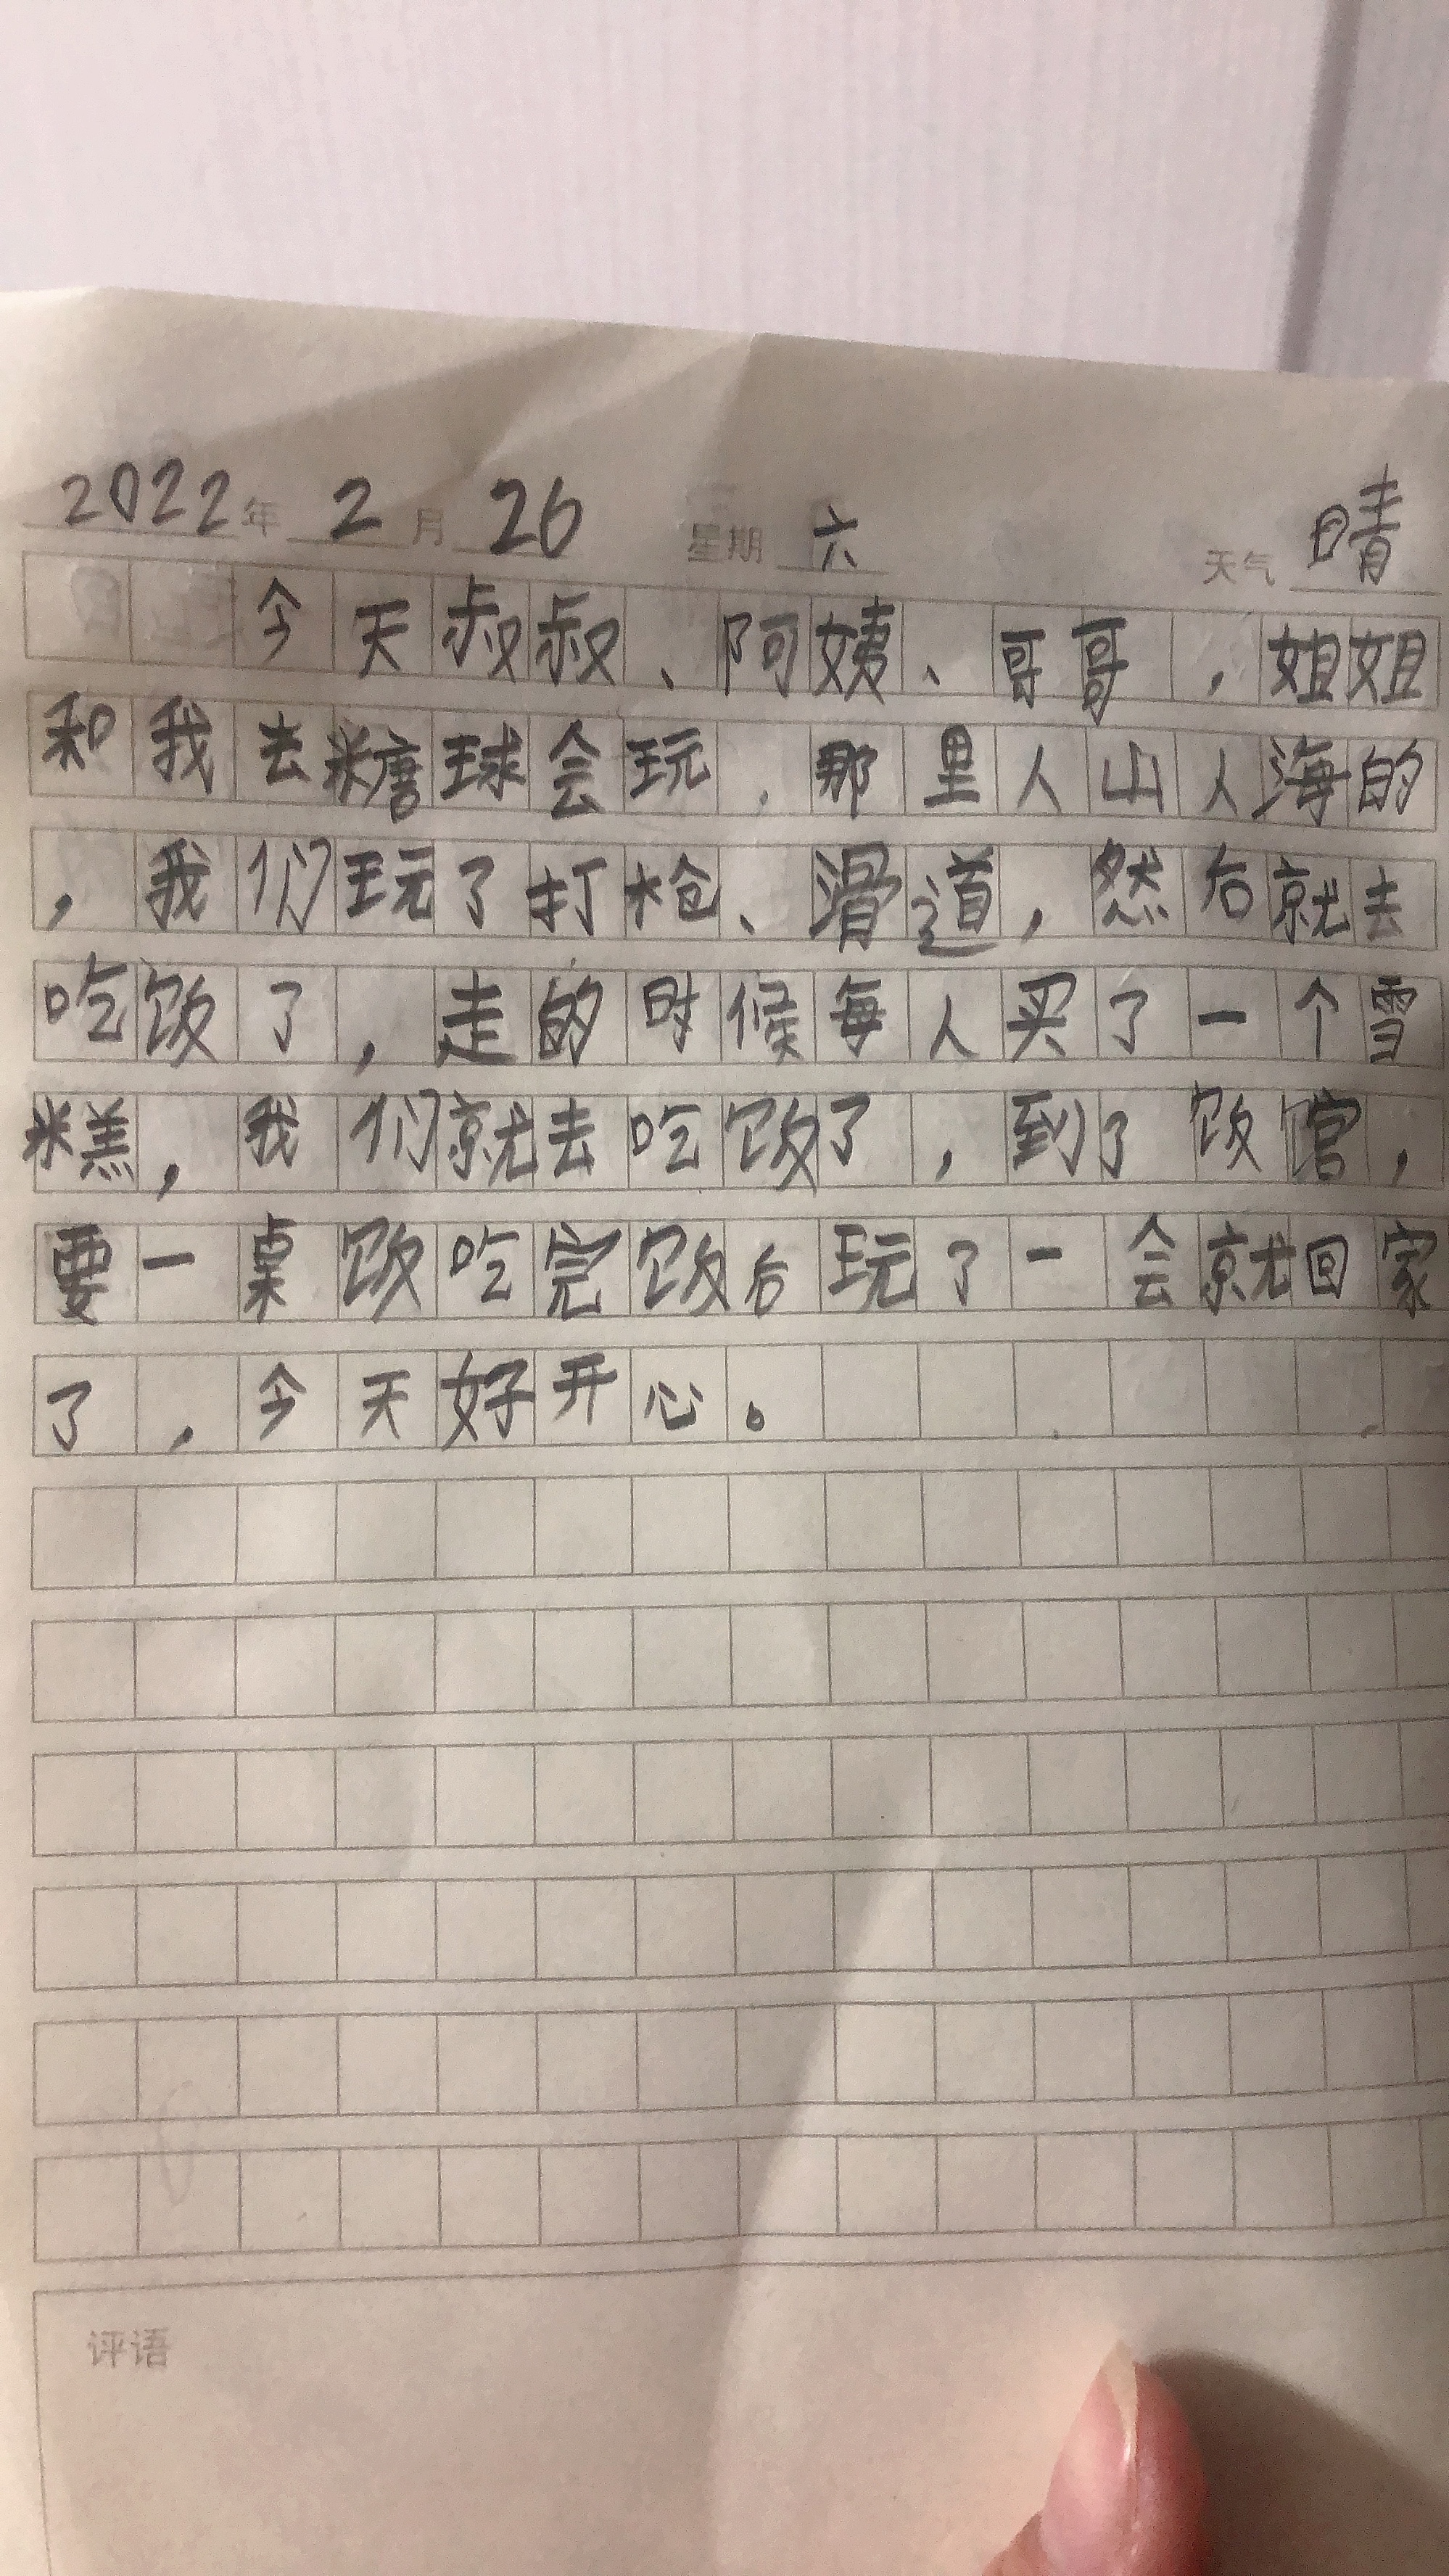 2022年 2月 26 星期 六 天气 晴
今天叔叔、阿姨、哥哥,姐姐
和我去糖球会玩,那里人山人海的
,我们玩了打枪、滑道,然后就去
吃饭了,走的时候每人买了一个雪
糕,我们就去吃饭了,到了饭馆,
要一桌饭吃完饭后玩了一会就回家
了,今天好开心。
评语